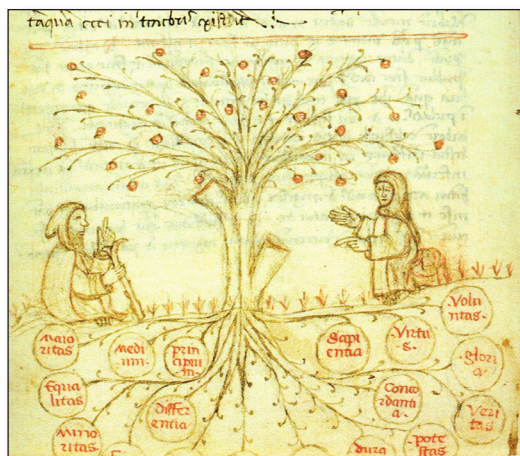 tāquā ceci in tenebris
Volu
ntas.
Maio
ritas
Medi
um.
prin
cipiu
m.
Sapi
entia
Virtu
s.
glori
a.
Equa
litas
differ
entia
Conco
rdanti
a.
Veri
tas
Mino
ritas
dura
pote
stas